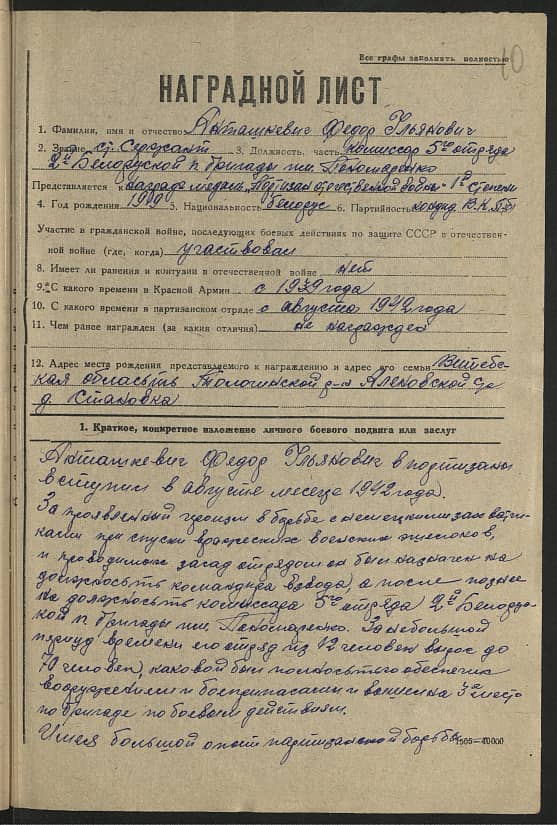 Все графы заполнить полностью
10
НАГРАДНОЙ ЛИСТ
1. Фамилия, имя и отчество Анташкевич Федор Ульянович
2. Звание ст. Сержант 3. Должность, часть комиссар 5го отряда
2й Белоруской п. бригады им. Пономаренко
Представляется к награде медаль "Партизан отечественной войны" 1й степени
4. Год рождения 1909 5. Национальность белорус 6. Партийность кандид. В.К.П.б)
Участие в гражданской войне, последующих боевых действиях по защите СССР в отечествен-
ной войне (где, когда) участвовал
8. Имеет ли ранения и контузии в отечественной войне нет
9. С какого времени в Красной Армии с 1939 года
10. С какого времени в партизанском отряде с августа 1942 года
11. Чем ранее награжден (за какия отличия) не награжден
12. Адрес места рождения представляемого к награждению и адрес его семьи Витебс-
кая обласьть Толочинской р-н с/с
д. Становка
1. Краткое, конкретное изложение личного боевого подвига или заслуг
Анташкевич Федор Ульянович в партизаны
вступил в августе месеце 1942 года.
За проявленный героизм в борьбе с немецкими захватчи-
ками при спуски вражеских военских эшелонов,
и проводимых засад отрядом он был назначен на
должносьть командира взвода, а после позднее
на должносьть комиссара 5го отряда 2й Белорус-
кой п. Бригады им. Пономаренко. За небольшой
период времени его отряд из 12 человек вырос до
70 человек, каковой был полносьтю обеспечен
вооружением и боеприпасами и вышел на 3е место
по бригаде по боевым действиям.
Имея большой опыт партизанской борьбы
1505—40000